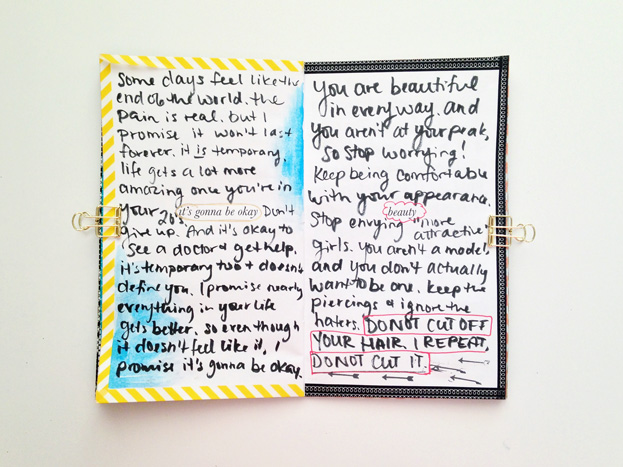 some days feel like the
end of the world. the
pain is real. but I
promise it won't last
forever. it is temporary.
life gets a lot more
amazing once you're in
your 20s. it's gonna be okay Don't
give up. And it's okay to
see a doctor & get help.
it's temporary too & doesn't
define you. I promise nearly
everything in your life
gets better. so even though
it doesn't feel like it, I
promise it's gonna be okay.
you are beautiful
in every way. and
you aren't at your peak,
so stop worrying!
Keep being comfortable
with your appearance.
beauty
Stop envying "more
attractive"
girls. you aren't a model,
and you don't actually
want to be one. keep the
piercings & ignore the
haters. DO NOT CUT OFF
YOUR HAIR. I REPEAT,
DO NOT CUT IT.